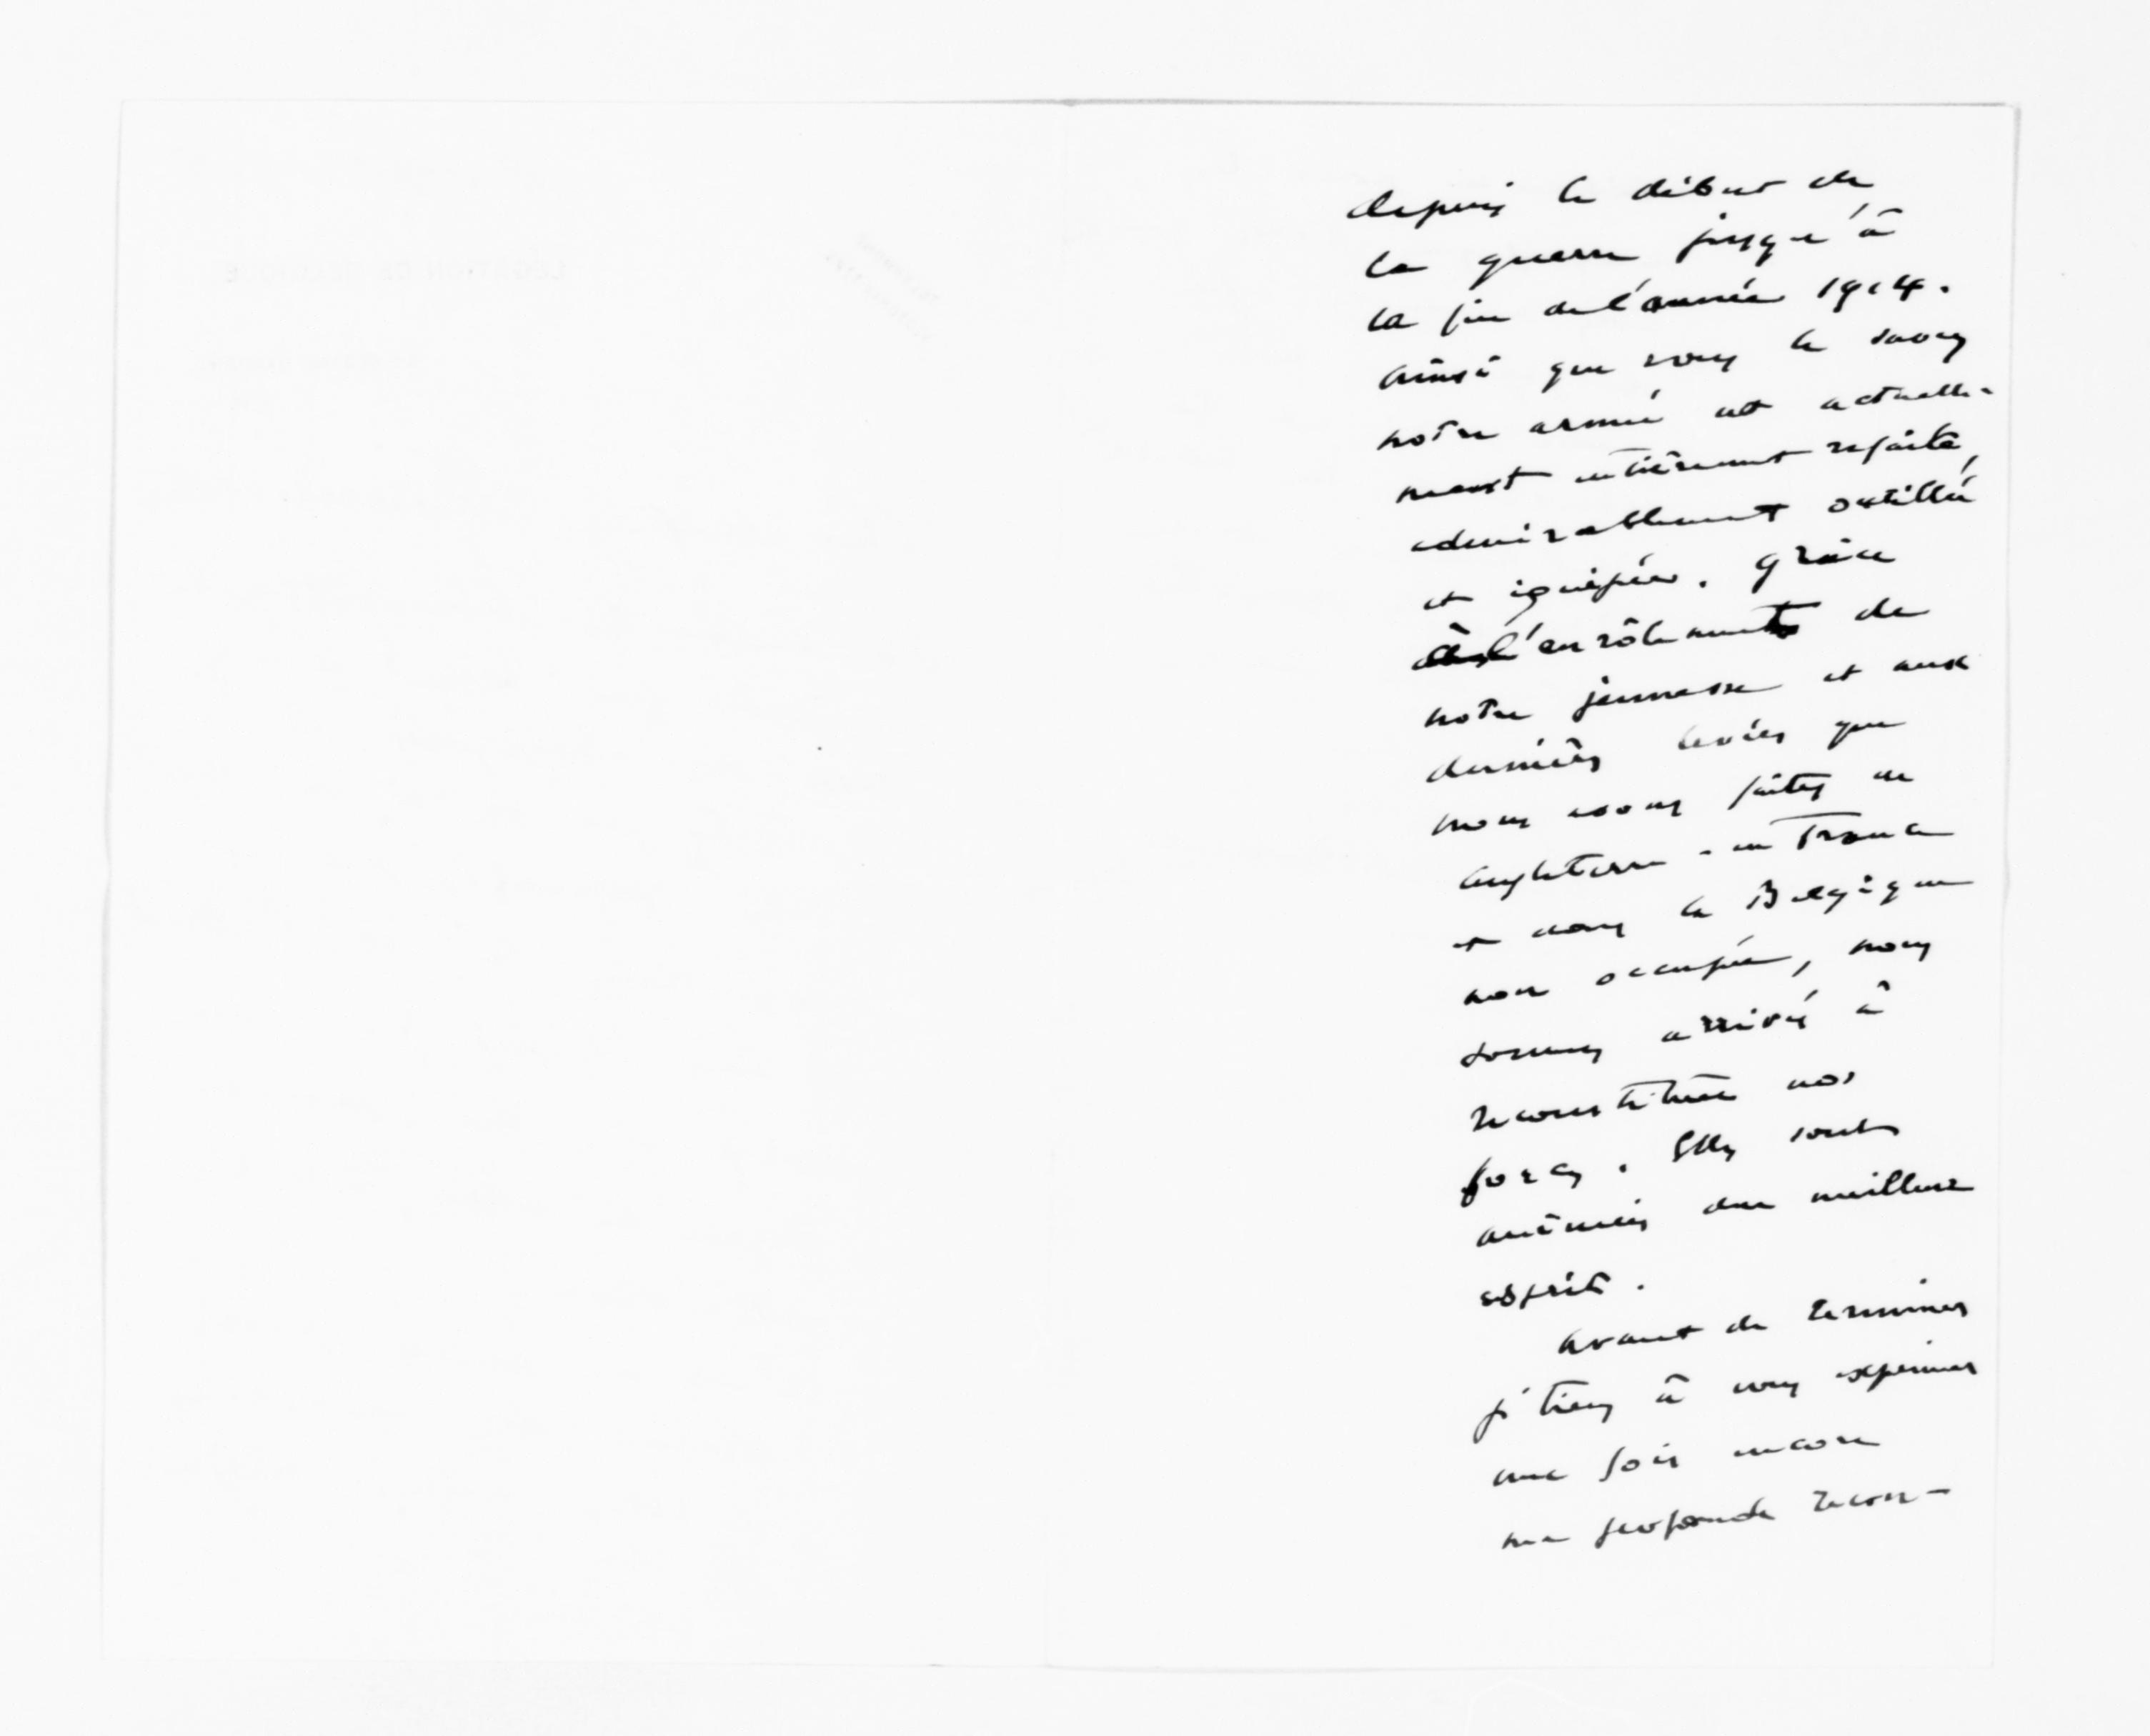 depuis le début de
la guerre jusqu'à
la fin de l'année 1914.
Ainsi que vous le savez
notre armée est actuelle-
ment entièrement refaite,
admirablement outillée
et équipée. Grâce
à l'enrôlement de
notre jeunesse et aux
dernières levées que
nous avons faites en
Angleterre - en France
et dans la Belgique
non occupée, nous
sommes arrivés à
reconstituer nos
forces. Elles sont
animées du meilleur
esprit.
Avant de terminer
je tiens à vous exprimer
une fois encore
ma profonde recon-